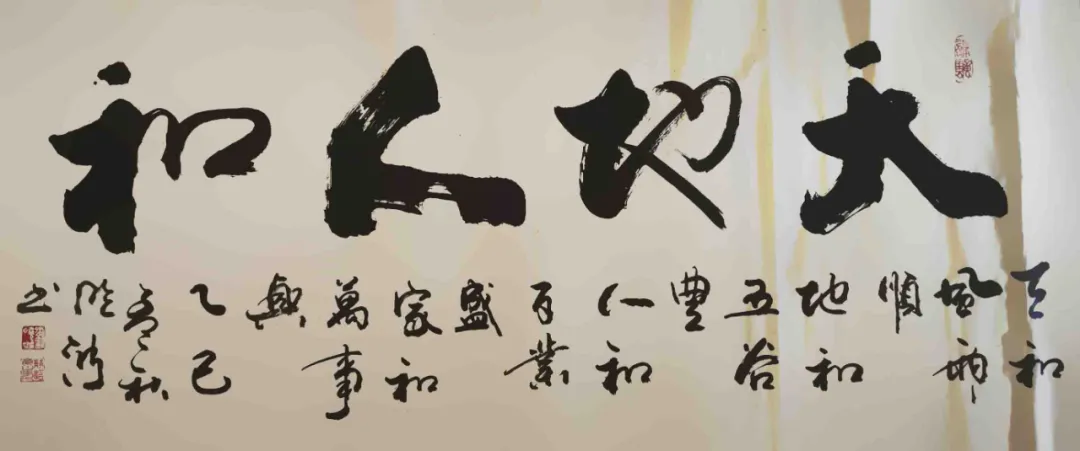 天地人和
天和
風雨
順
地和
五谷
豐
人和
百業
盛
家和
萬事
興
乙巳
秋
书